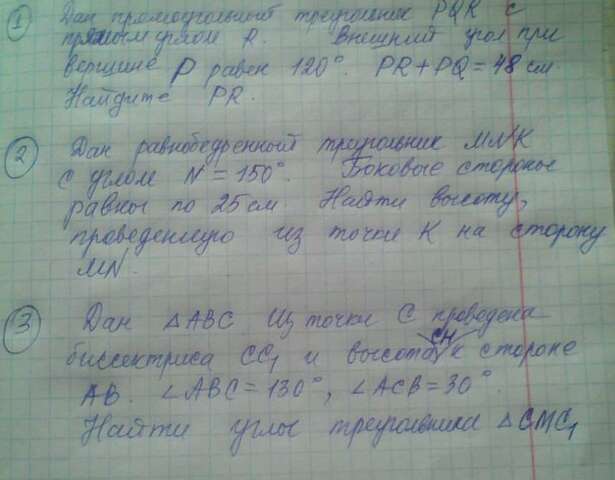 1 Дан прямоугольный треугольник PQR с
прямым углом R. Внешний угол при
вершине P равен 120°. PR + PQ = 48 см
Найдите PR.
2 Дан равнобедренный треугольник MNK
с углом N = 150°. Боковые стороны
равны по 25 см Найти высоту,
проведенную из точки K на сторону
MN.
3 Дан △ABC Из точки C проведена
биссектриса CC₁ и высота CH к стороне
AB. ∠ABC = 130°, ∠ACB = 30°.
Найти углы треугольника △CHC₁